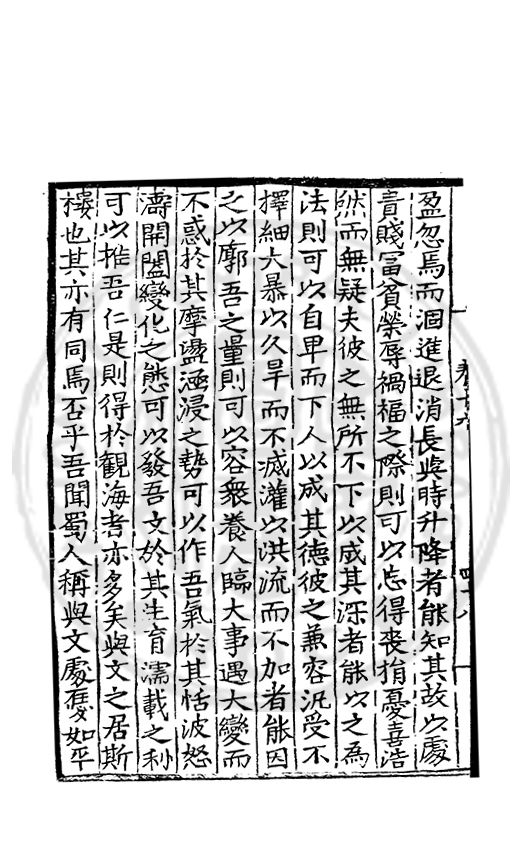 盈忽焉而涸進退消長與時升降者能知其故以處
貴賤富貧榮辱禍福之際則可以忘得喪捐憂喜浩
然而無疑夫彼之無所不下以成其深者能以之為
法則可以自卑而下人以成其德彼之兼容況受不
擇細大暴以久旱而不滅灌以洪流而不加者能因
之以廓吾之量則可以容衆養人臨大事遇大變而
不惑於其摩盪涵浸之勢可以作吾氣於其恬波怒
濤開闔變化之態可以發吾文於其生育濡載之利
可以推吾仁是則得於觀海者亦多矣與文之居斯
樓也其亦有同焉否乎吾聞蜀人稱與文處憂如平